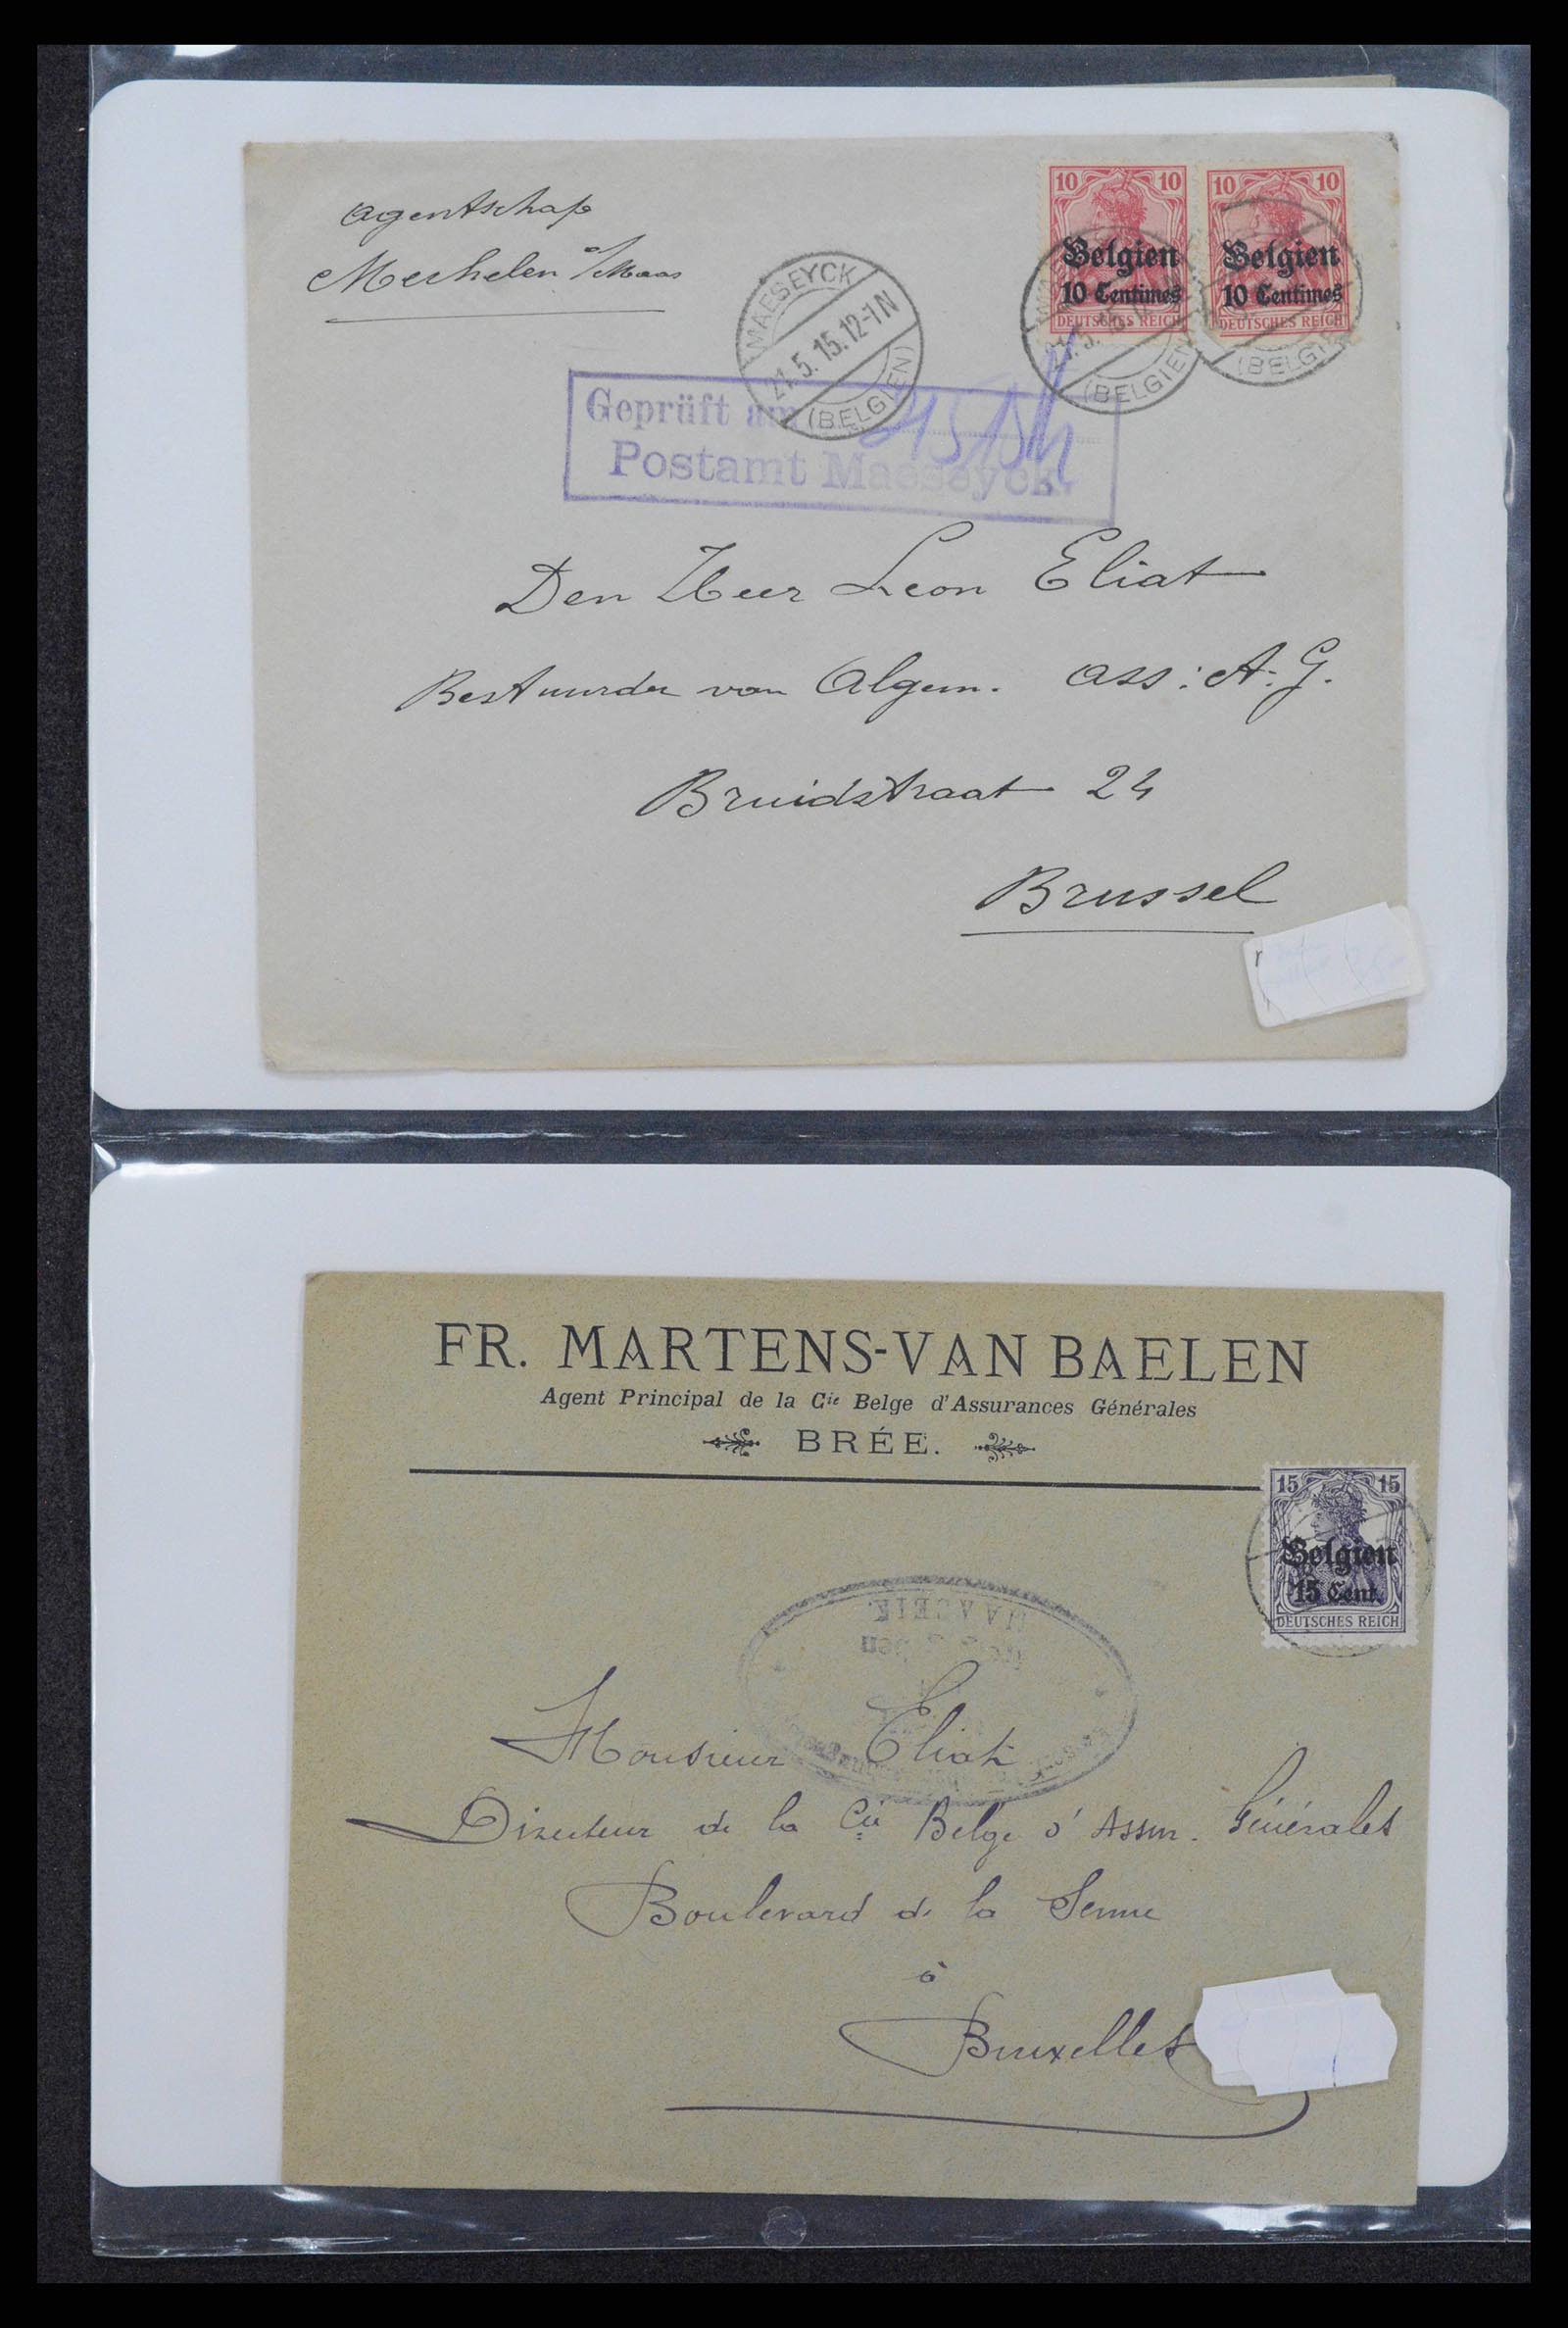 agentschap
Mechelen a/Maas
10 10
Belgien
10 Centimes
DEUTSCHES REICH
10 10
Belgien
10 Centimes
DEUTSCHES REICH
MAESEYCK
21.5.15.12-1N
(BELGIEN)
(BELGIEN)
(BELGIE
Geprüft am
Postamt Maeseyck.
Den Heer Leon Eliat
Bestuurder van Algem. Ass: A. G.
Bruidstraat 24
Brussel
FR. MARTENS-VAN BAELEN
Agent Principal de la Cie Belge d'Assurances Générales
BRÉE.
15 15
Belgien
15 Cent.
DEUTSCHES REICH
MAASEIK
Monsieur Eliat
Directeur de la Cie Belge d'Assur. Générales
Boulevard de la Senne
à
Bruxelles